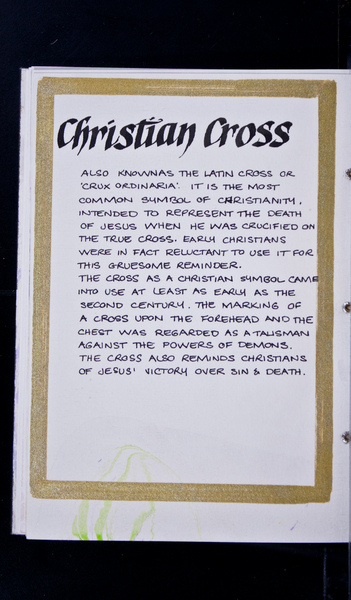 Christian Cross
ALSO KNOWNAS THE LATIN CROSS OR
'CRUX ORDINARIA'. IT IS THE MOST
COMMON SYMBOL OF CHRISTIANITY,
INTENDED TO REPRESENT THE DEATH
OF JESUS WHEN HE WAS CRUCIFIED ON
THE TRUE CROSS. EARLY CHRISTIANS
WERE IN FACT RELUCTANT TO USE IT FOR
THIS GRUESOME REMINDER.
THE CROSS AS A CHRISTIAN SYMBOL CAME
INTO USE AT LEAST AS EARLY AS THE
SECOND CENTURY. THE MARKING OF
A CROSS UPON THE FOREHEAD AND THE
CHEST WAS REGARDED AS A TALISMAN
AGAINST THE POWERS OF DEMONS.
THE CROSS ALSO REMINDS CHRISTIANS
OF JESUS' VICTORY OVER SIN & DEATH.